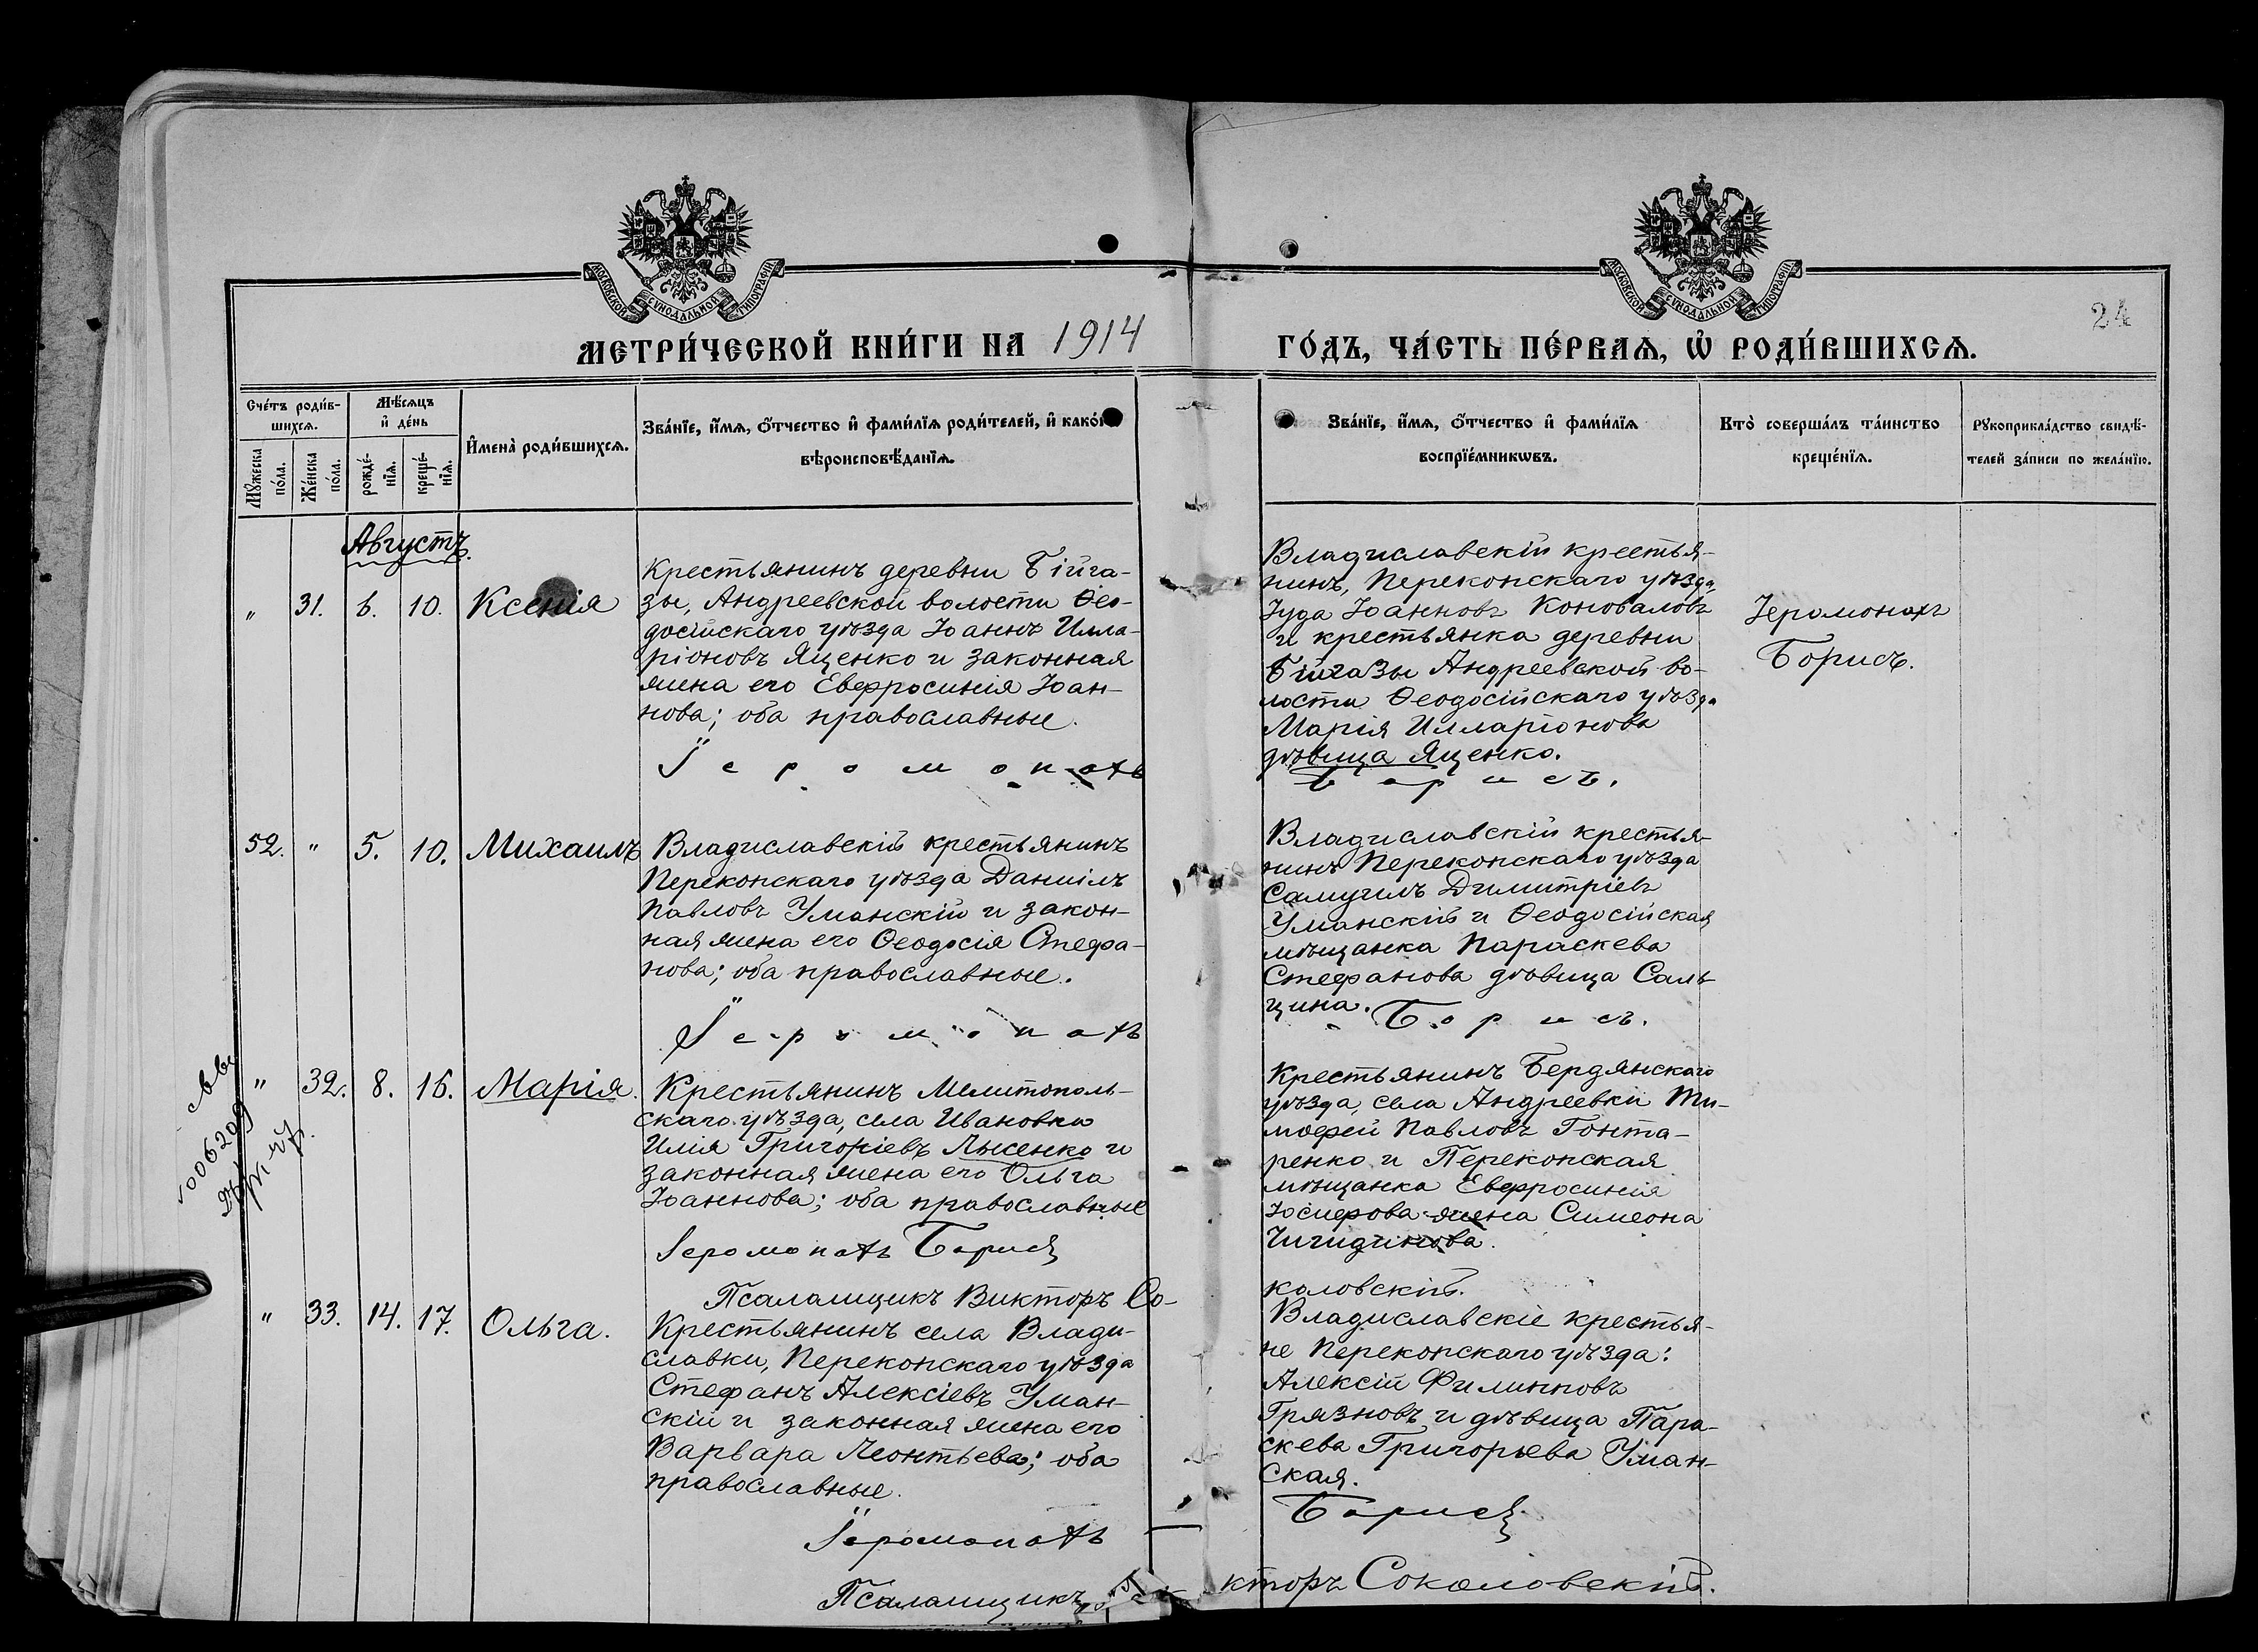 МОСКОВСКОЙ СѴНОДАЛЬНОЙ ТИПОГРАФІИ
МОСКОВСКОЙ СѴНОДАЛЬНОЙ ТИПОГРАФІИ
24
МЕТРИ́ЧЕСКОЙ КНИ́ГИ НА 1914
ГО́ДЪ, ЧА́СТЬ ПЕ́РВАѦ, Ѡ҆ РОДИ́ВШИХСѦ.
Сче́тъ роди́в-
шихсѧ.
Мꙋ́жеска по́ла.
Же́нска по́ла.
Мѣ́сѧцъ
и҆ де́нь
рожде́-
нїѧ.
креще́-
нїѧ.
И҆мена̀ роди́вшихсѧ.
Зва́нїе, и҆́мѧ, ѻ҆́тчество и҆ фами́лїѧ роди́телей, и҆ како́й
вѣроисповѣ́данїѧ.
Зва́нїе, и҆́мѧ, ѻ҆́тчество и҆ фами́лїѧ
воспрїе́мникѡвъ.
Кто̀ соверша́лъ та́инство
креще́нїѧ.
Рꙋкоприкла́дство свидѣ́-
телей за́писи по жела́нїю.
Августъ.
" 31. 6. 10. Ксенія
Крестьянинъ деревни Бійга-
зы, Андреевской волости Ѳео-
досійскаго уѣзда Іоаннъ Илла-
ріоновъ Яценко и законная
жена его Евфросинія Іоан-
нова; оба православные.
Іеромонахъ
Владиславскій крестья-
нинъ, Перекопскаго уѣзда,
Іуда Іоанновъ Коноваловъ
и крестьянка деревни
Бійгазы Андреевской во-
лости Ѳеодосійскаго уѣзда
Марія Илларіонова
дѣвица Яценко.
Борисъ.
Іеромонахъ
Борисъ.
52. " 5. 10. Михаилъ
Владиславскій крестьянинъ
Перекопскаго уѣзда Даніилъ
Павловъ Уманскій и закон-
ная жена его Ѳеодосія Стефа-
нова; оба православные.
Іеромонахъ
Владиславскій крестья-
нинъ Перекопскаго уѣзда
Самуилъ Димитріевъ
Уманскій и Ѳеодосійская
мѣщанка Параскева
Стефанова дѣвица Саль-
цина.
Борисъ.
" 32. 8. 16. Марія.
Крестьянинъ Мелитополь-
скаго уѣзда, села Ивановки
Илія Григоріевъ Лысенко и
законная жена его Ольга
Іоаннова; оба православные
Іеромонахъ Борисъ
Псаломщикъ Викторъ Со-
Крестьянинъ Бердянскаго
уѣзда, села Андреевки Ти-
мофей Павловъ Гонта-
ренко и Перекопская
мѣщанка Евфросинія
Іосифова жена Симеона
коловскій.
" 33. 14. 17. Ольга.
Крестьянинъ села Влади-
славки, Перекопскаго уѣзда
Стефанъ Алексіевъ Уман-
скій и законная жена его
Варвара Леонтьева; оба
православные.
Іеромонахъ
Псаломщикъ
Владиславскіе крестья-
не Перекопскаго уѣзда:
Алексій Филипповъ
Грязновъ и дѣвица Пара-
скева Григорьева Уман-
ская.
Борисъ
кторъ Соколовскій.